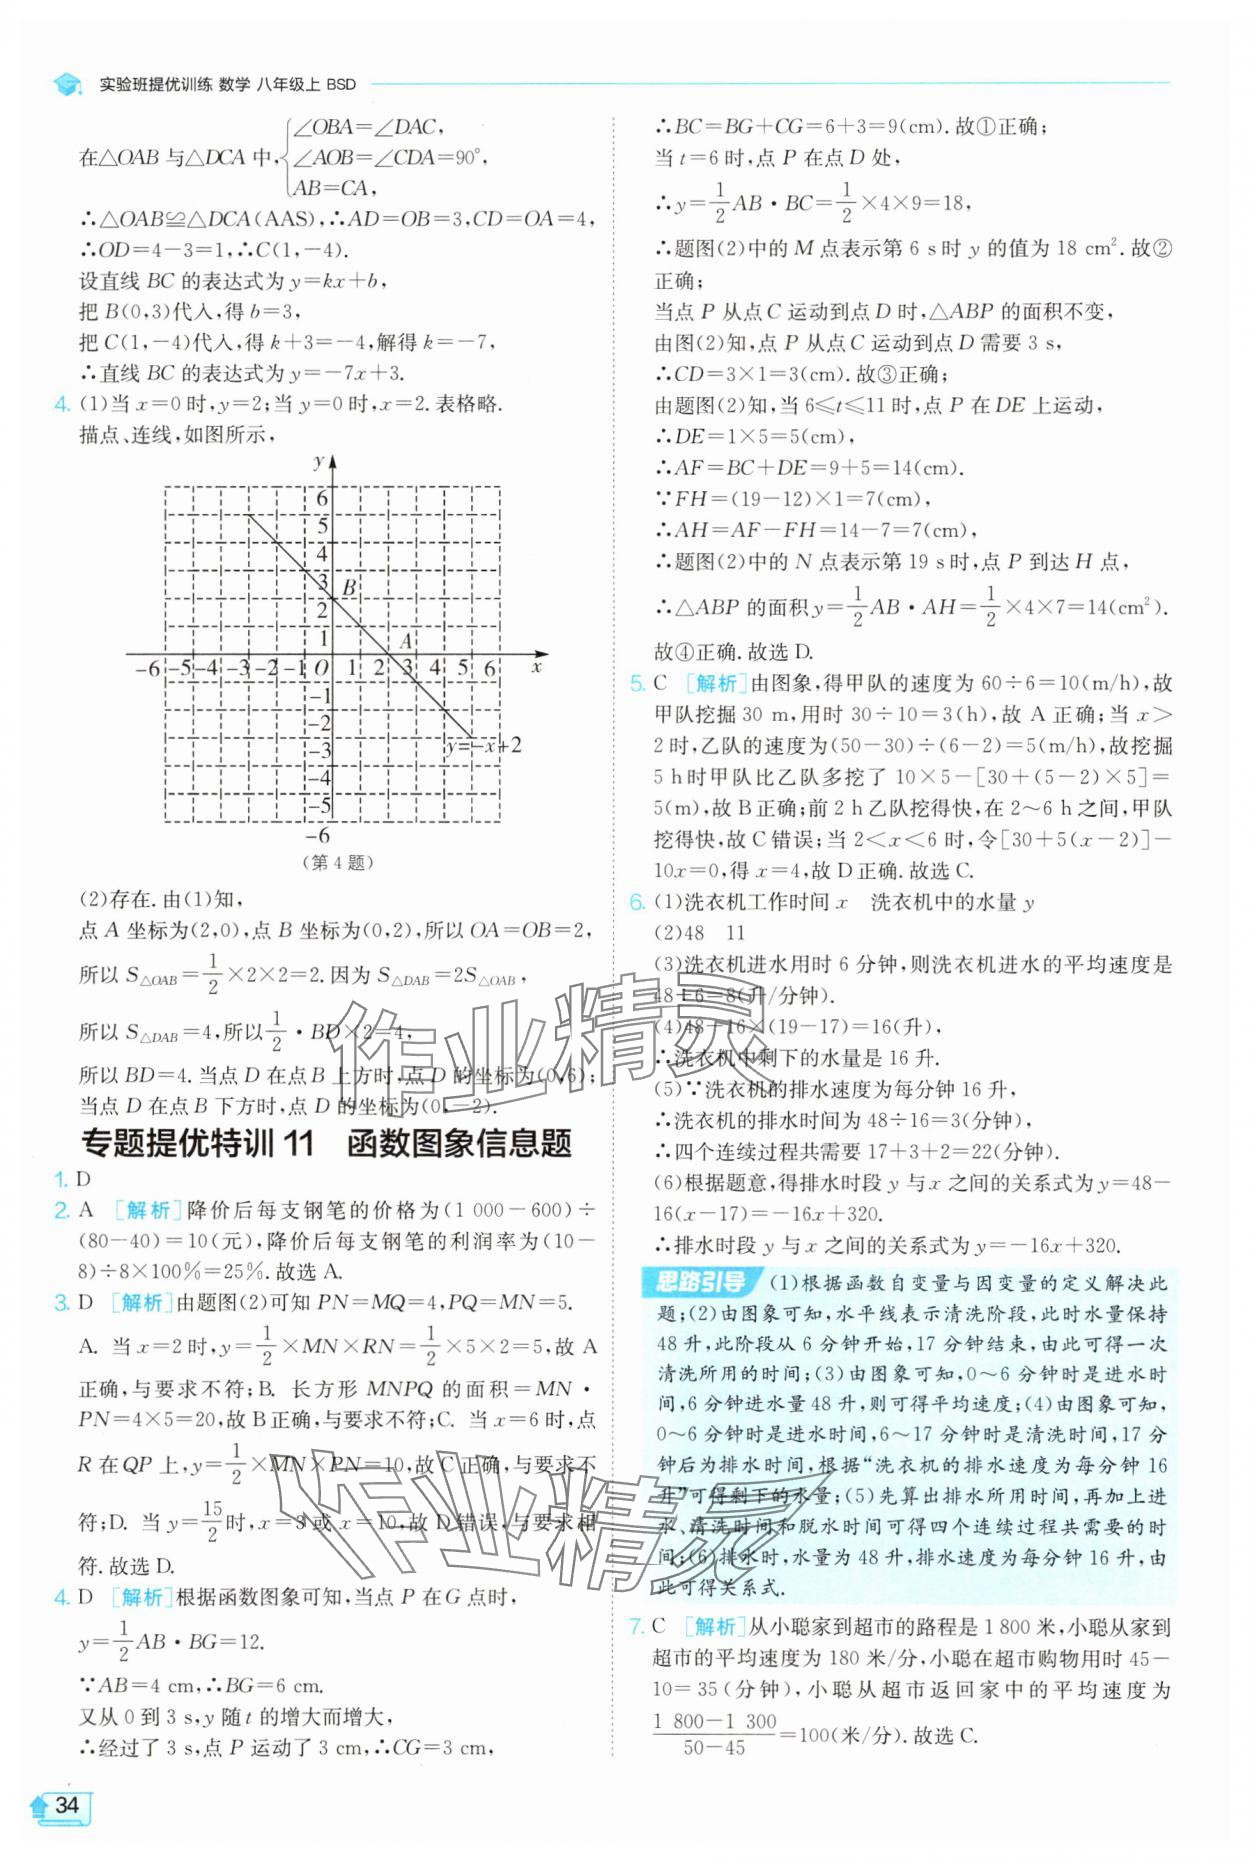 实验班提优训练 数学 八年级上 BSD
在△OAB与△DCA中,{∠OBA=∠DAC,
∠AOB=∠CDA=90°,
AB=CA,
∴△OAB≌△DCA(AAS),∴AD=OB=3,CD=OA=4,
∴OD=4-3=1,∴C(1,-4).
设直线 BC 的表达式为 y=kx+b,
把 B(0,3)代入,得 b=3,
把 C(1,-4)代入,得 k+3=-4,解得 k=-7,
∴直线 BC 的表达式为 y=-7x+3.
4. (1)当 x=0 时,y=2;当 y=0 时,x=2.表格略.
描点、连线,如图所示,
y
6
5
4
3
B
2
1
A
-6 -5 -4 -3 -2 -1 O 1 2 3 4 5 6 x
-1
-2
y=-x+2
-3
-4
-5
-6
(第 4 题)
(2)存在.由(1)知,
点 A 坐标为(2,0),点 B 坐标为(0,2),所以 OA=OB=2,
所以 S△OAB=1/2×2×2=2.因为 S△DAB=2S△OAB,
所以 S△DAB=4,所以1/2·BD×2=4,
所以 BD=4.当点 D 在点 B 上方时,点 D 的坐标为(0,6);
当点 D 在点 B 下方时,点 D 的坐标为(0,-2).
专题提优特训 11 函数图象信息题
1. D
2. A [解析]降价后每支钢笔的价格为(1 000-600)÷
(80-40)=10(元),降价后每支钢笔的利润率为(10-
8)÷8×100%=25%.故选 A.
3. D [解析]由题图(2)可知 PN=MQ=4,PQ=MN=5.
A. 当 x=2 时,y=1/2×MN×RN=1/2×5×2=5,故 A
正确,与要求不符;B. 长方形 MNPQ 的面积=MN·
PN=4×5=20,故 B 正确,与要求不符;C. 当 x=6 时,点
R 在 QP 上,y=1/2×MN×PN=10,故 C 正确,与要求不
符;D. 当 y=15/2时,x=3 或 x=10,故 D 错误,与要求相
符.故选 D.
4. D [解析]根据函数图象可知,当点 P 在 G 点时,
y=1/2AB·BG=12.
∵AB=4 cm,∴BG=6 cm.
又从 0 到 3 s,y 随 t 的增大而增大,
∴经过了 3 s,点 P 运动了 3 cm,∴CG=3 cm,
∴BC=BG+CG=6+3=9(cm).故①正确;
当 t=6 时,点 P 在点 D 处,
∴y=1/2AB·BC=1/2×4×9=18,
∴题图(2)中的 M 点表示第 6 s 时 y 的值为 18 cm².故②
正确;
当点 P 从点 C 运动到点 D 时,△ABP 的面积不变,
由图(2)知,点 P 从点 C 运动到点 D 需要 3 s,
∴CD=3×1=3(cm).故③正确;
由题图(2)知,当 6≤t≤11 时,点 P 在 DE 上运动,
∴DE=1×5=5(cm),
∴AF=BC+DE=9+5=14(cm).
∵FH=(19-12)×1=7(cm),
∴AH=AF-FH=14-7=7(cm),
∴题图(2)中的 N 点表示第 19 s 时,点 P 到达 H 点,
∴△ABP 的面积 y=1/2AB·AH=1/2×4×7=14(cm²).
故④正确.故选 D.
5. C [解析]由图象,得甲队的速度为 60÷6=10(m/h),故
甲队挖掘 30 m,用时 30÷10=3(h),故 A 正确;当 x>
2 时,乙队的速度为(50-30)÷(6-2)=5(m/h),故挖掘
5 h 时甲队比乙队多挖了 10×5-[30+(5-2)×5]=
5(m),故 B 正确;前 2 h 乙队挖得快,在 2～6 h 之间,甲队
挖得快,故 C 错误;当 2<x<6 时,令[30+5(x-2)]-
10x=0,得 x=4,故 D 正确.故选 C.
6. (1)洗衣机工作时间 x 洗衣机中的水量 y
(2)48 11
(3)洗衣机进水用时 6 分钟,则洗衣机进水的平均速度是
48÷6=8(升/分钟).
(4)48-16×(19-17)=16(升),
∴洗衣机中剩下的水量是 16 升.
(5)∵洗衣机的排水速度为每分钟 16 升,
∴洗衣机的排水时间为 48÷16=3(分钟),
∴四个连续过程共需要 17+3+2=22(分钟).
(6)根据题意,得排水时段 y 与 x 之间的关系式为 y=48-
16(x-17)=-16x+320.
∴排水时段 y 与 x 之间的关系式为 y=-16x+320.
思路引导 (1)根据函数自变量与因变量的定义解决此
题;(2)由图象可知,水平线表示清洗阶段,此时水量保持
48 升,此阶段从 6 分钟开始,17 分钟结束,由此可得一次
清洗所用的时间;(3)由图象可知,0～6 分钟时是进水时
间,6 分钟进水量 48 升,则可得平均速度;(4)由图象可知,
0～6 分钟时是进水时间,6～17 分钟时是清洗时间,17 分
钟后为排水时间,根据“洗衣机的排水速度为每分钟 16
升”可得剩下的水量;(5)先算出排水所用时间,再加上进
水、清洗时间和脱水时间可得四个连续过程共需要的时
间;(6)排水时,水量为 48 升,排水速度为每分钟 16 升,由
此可得关系式.
7. C [解析]从小聪家到超市的路程是 1 800 米,小聪从家到
超市的平均速度为 180 米/分,小聪在超市购物用时 45-
10=35(分钟),小聪从超市返回家中的平均速度为
(1 800-1 300)/(50-45)=100(米/分).故选 C.
34
作业精灵
作业精灵